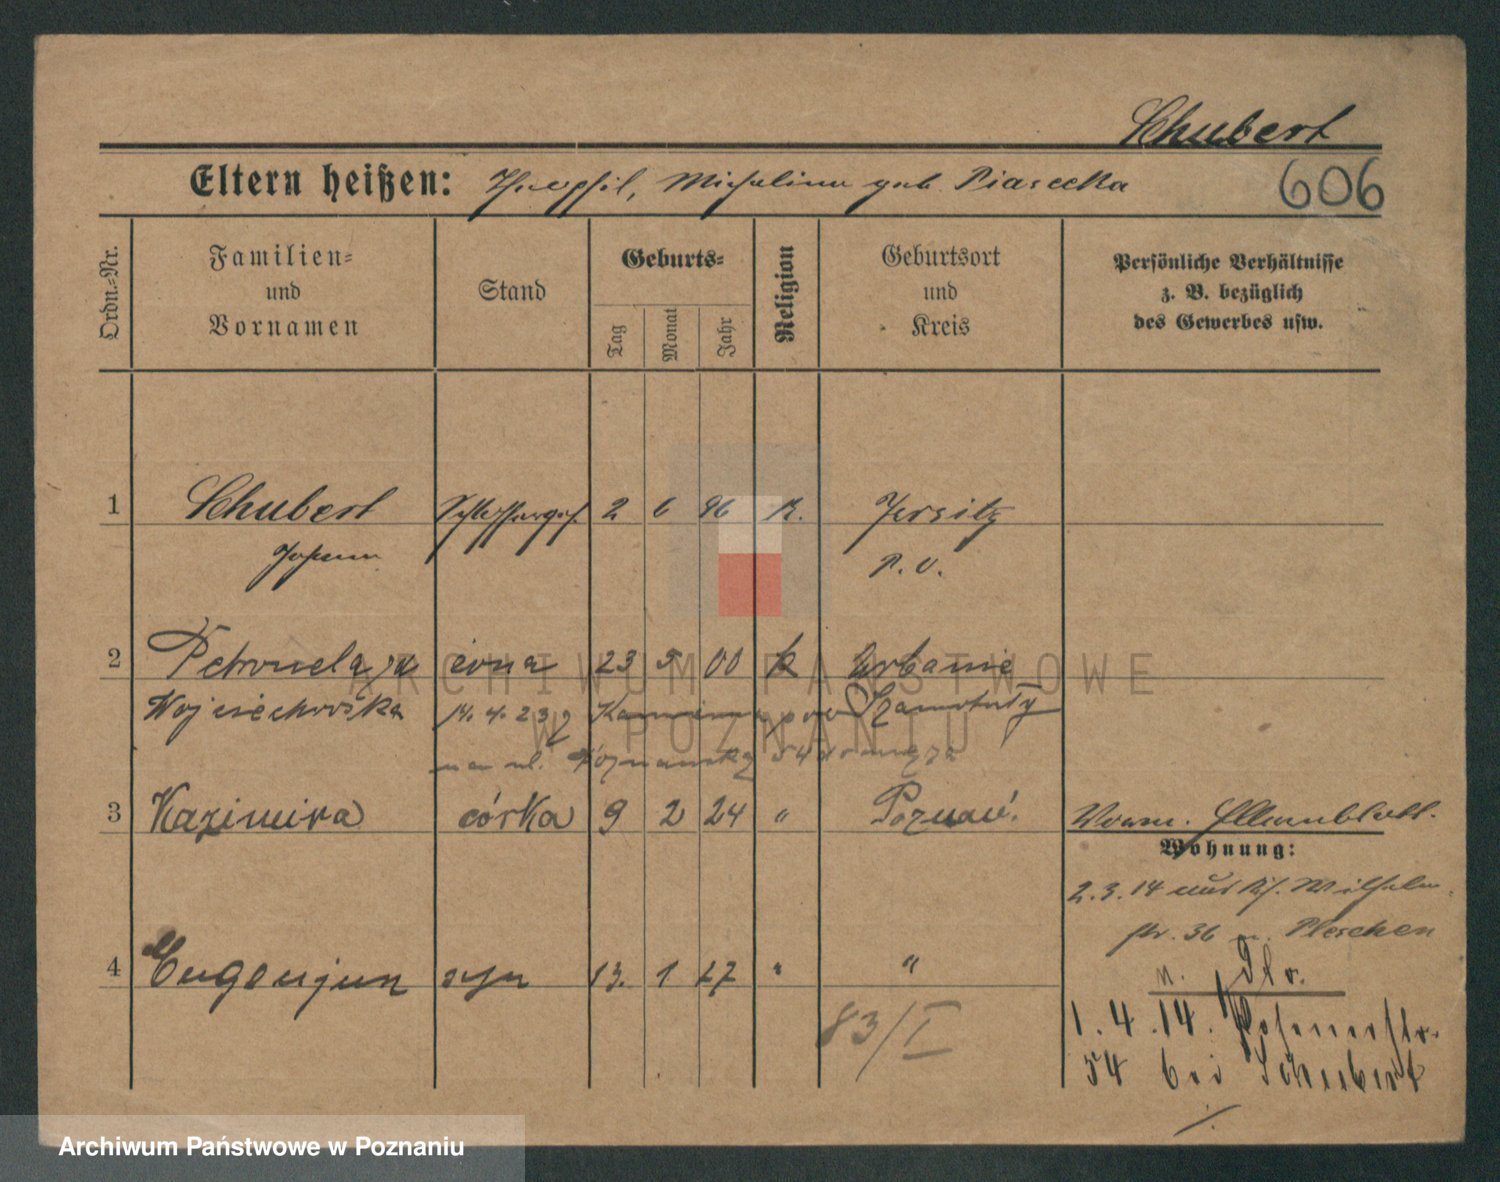 Schubert
Eltern heißen: Theophil, Michalina geb. Piasecka
606
Ordn.-Nr.
Familien-
und
Vornamen
Stand
Geburts-
Tag
Monat
Jahr
Religion
Geburtsort
und
Kreis
Persönliche Verhältnisse
z. B. bezüglich
des Gewerbes usw.
1 Schubert Schlosserges. 2 6 96 K. Jersitz
Johann P. O.
2 Petronela żona 23 5 00 k
Wojciechowska 14. 4. 23 z Szamotuły
na ul. 54 do męża
3 Kazimira córka 9 2 24 " Poznań.
Vorm. Stammblatt.
Wohnung:
2.3.14 aus Wilhelm
str. 36 n. Pleschen
n.
1. 4. 14. Posenerstr.
54 bei Schubert
4 Eugenjun syn 13. 1 27 " "
83/I
ARCHIWUM PAŃSTWOWE
W POZNANIU
Archiwum Państwowe w Poznaniu